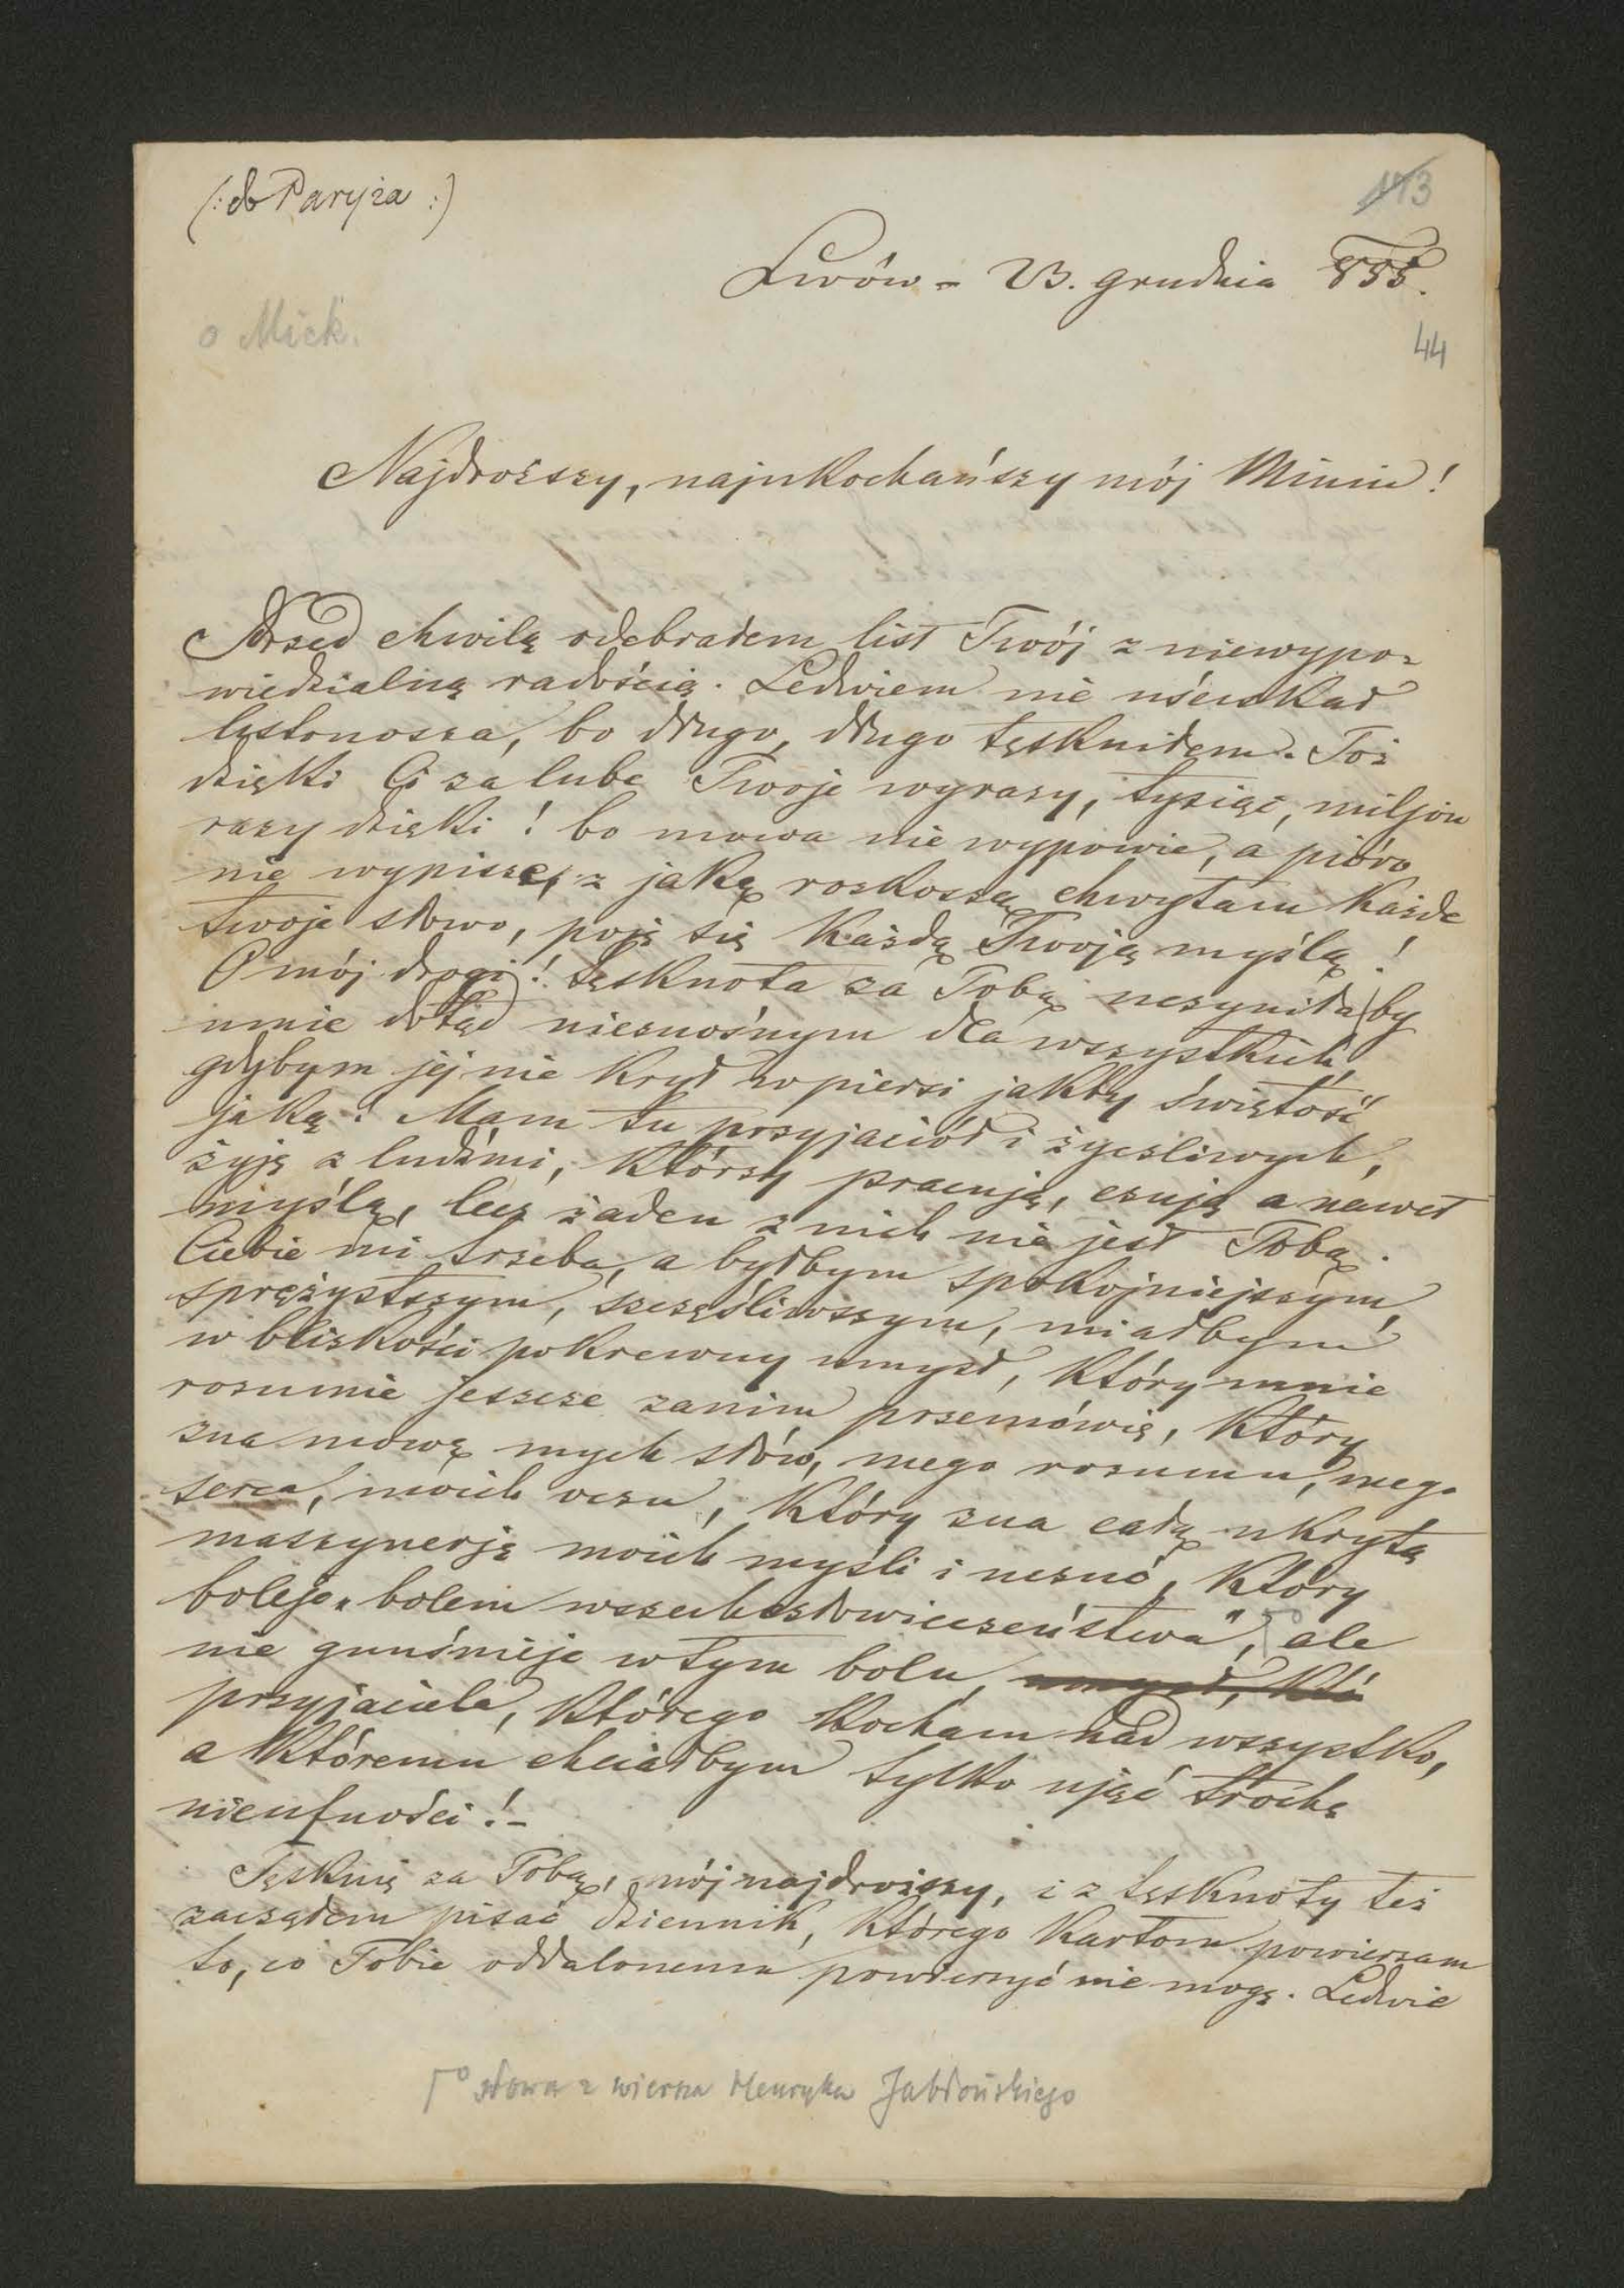 (: do Paryża :)
173
Lwów – 23. grudnia 855.
o Mick.
44
Najdroższy, najukochańszy mój Miniu!
Przed chwilą odebrałem list Twój z niewypo-
wiedzialną radością. Ledwiem nie uściskał
listonosza, bo długo, długo tęskniłem. Toż
dzięki Ci za lube Twoje wyrazy, tysiąc, miljon
razy dzięki! bo mowa nie wypowie, a pióro
nie wypisze, z jaką roskoszą chwytam każde
twoje słowo, poję się każdą Twoją myślą!
O mój drogi! tęsknota za Tobą uczyniłaby
mnie dotąd nieznośnym dla wszystkich,
gdybym jej nie krył w piersi jakby świętość
jaką. Mam tu przyjaciół i życzliwych,
żyję z ludźmi, którzy pracują, czują a nawet
myślą, lecz żaden z nich nie jest Tobą.
Ciebie mi trzeba, a byłbym spokojniejszym,
sprężystszym, szczęśliwszym, miałbym
w bliskości pokrewny umysł, który mnie
rozumie jeszcze zanim przemówię, który
zna mowę mych słów, mego rozumu, mego
serca, moich oczu, który zna całą ukrytą
maszynerję moich myśli i uczuć, który
boleje "bolem wszechczłowieczeństwa", ale
nie gnuśnieje w tym bolu, umysł, któ
przyjaciela, którego kocham nad wszystko,
a któremu chciałbym tylko ująć trochę
nieufności! –
Tęsknię za Tobą, mój najdroższy, i z tęsknoty też
zacząłem pisać dziennik, którego kartom powierzam
to, co Tobie oddalonemu powierzyć nie mogę. Ledwie
słowa z wiersza Henryka Jabłońskiego